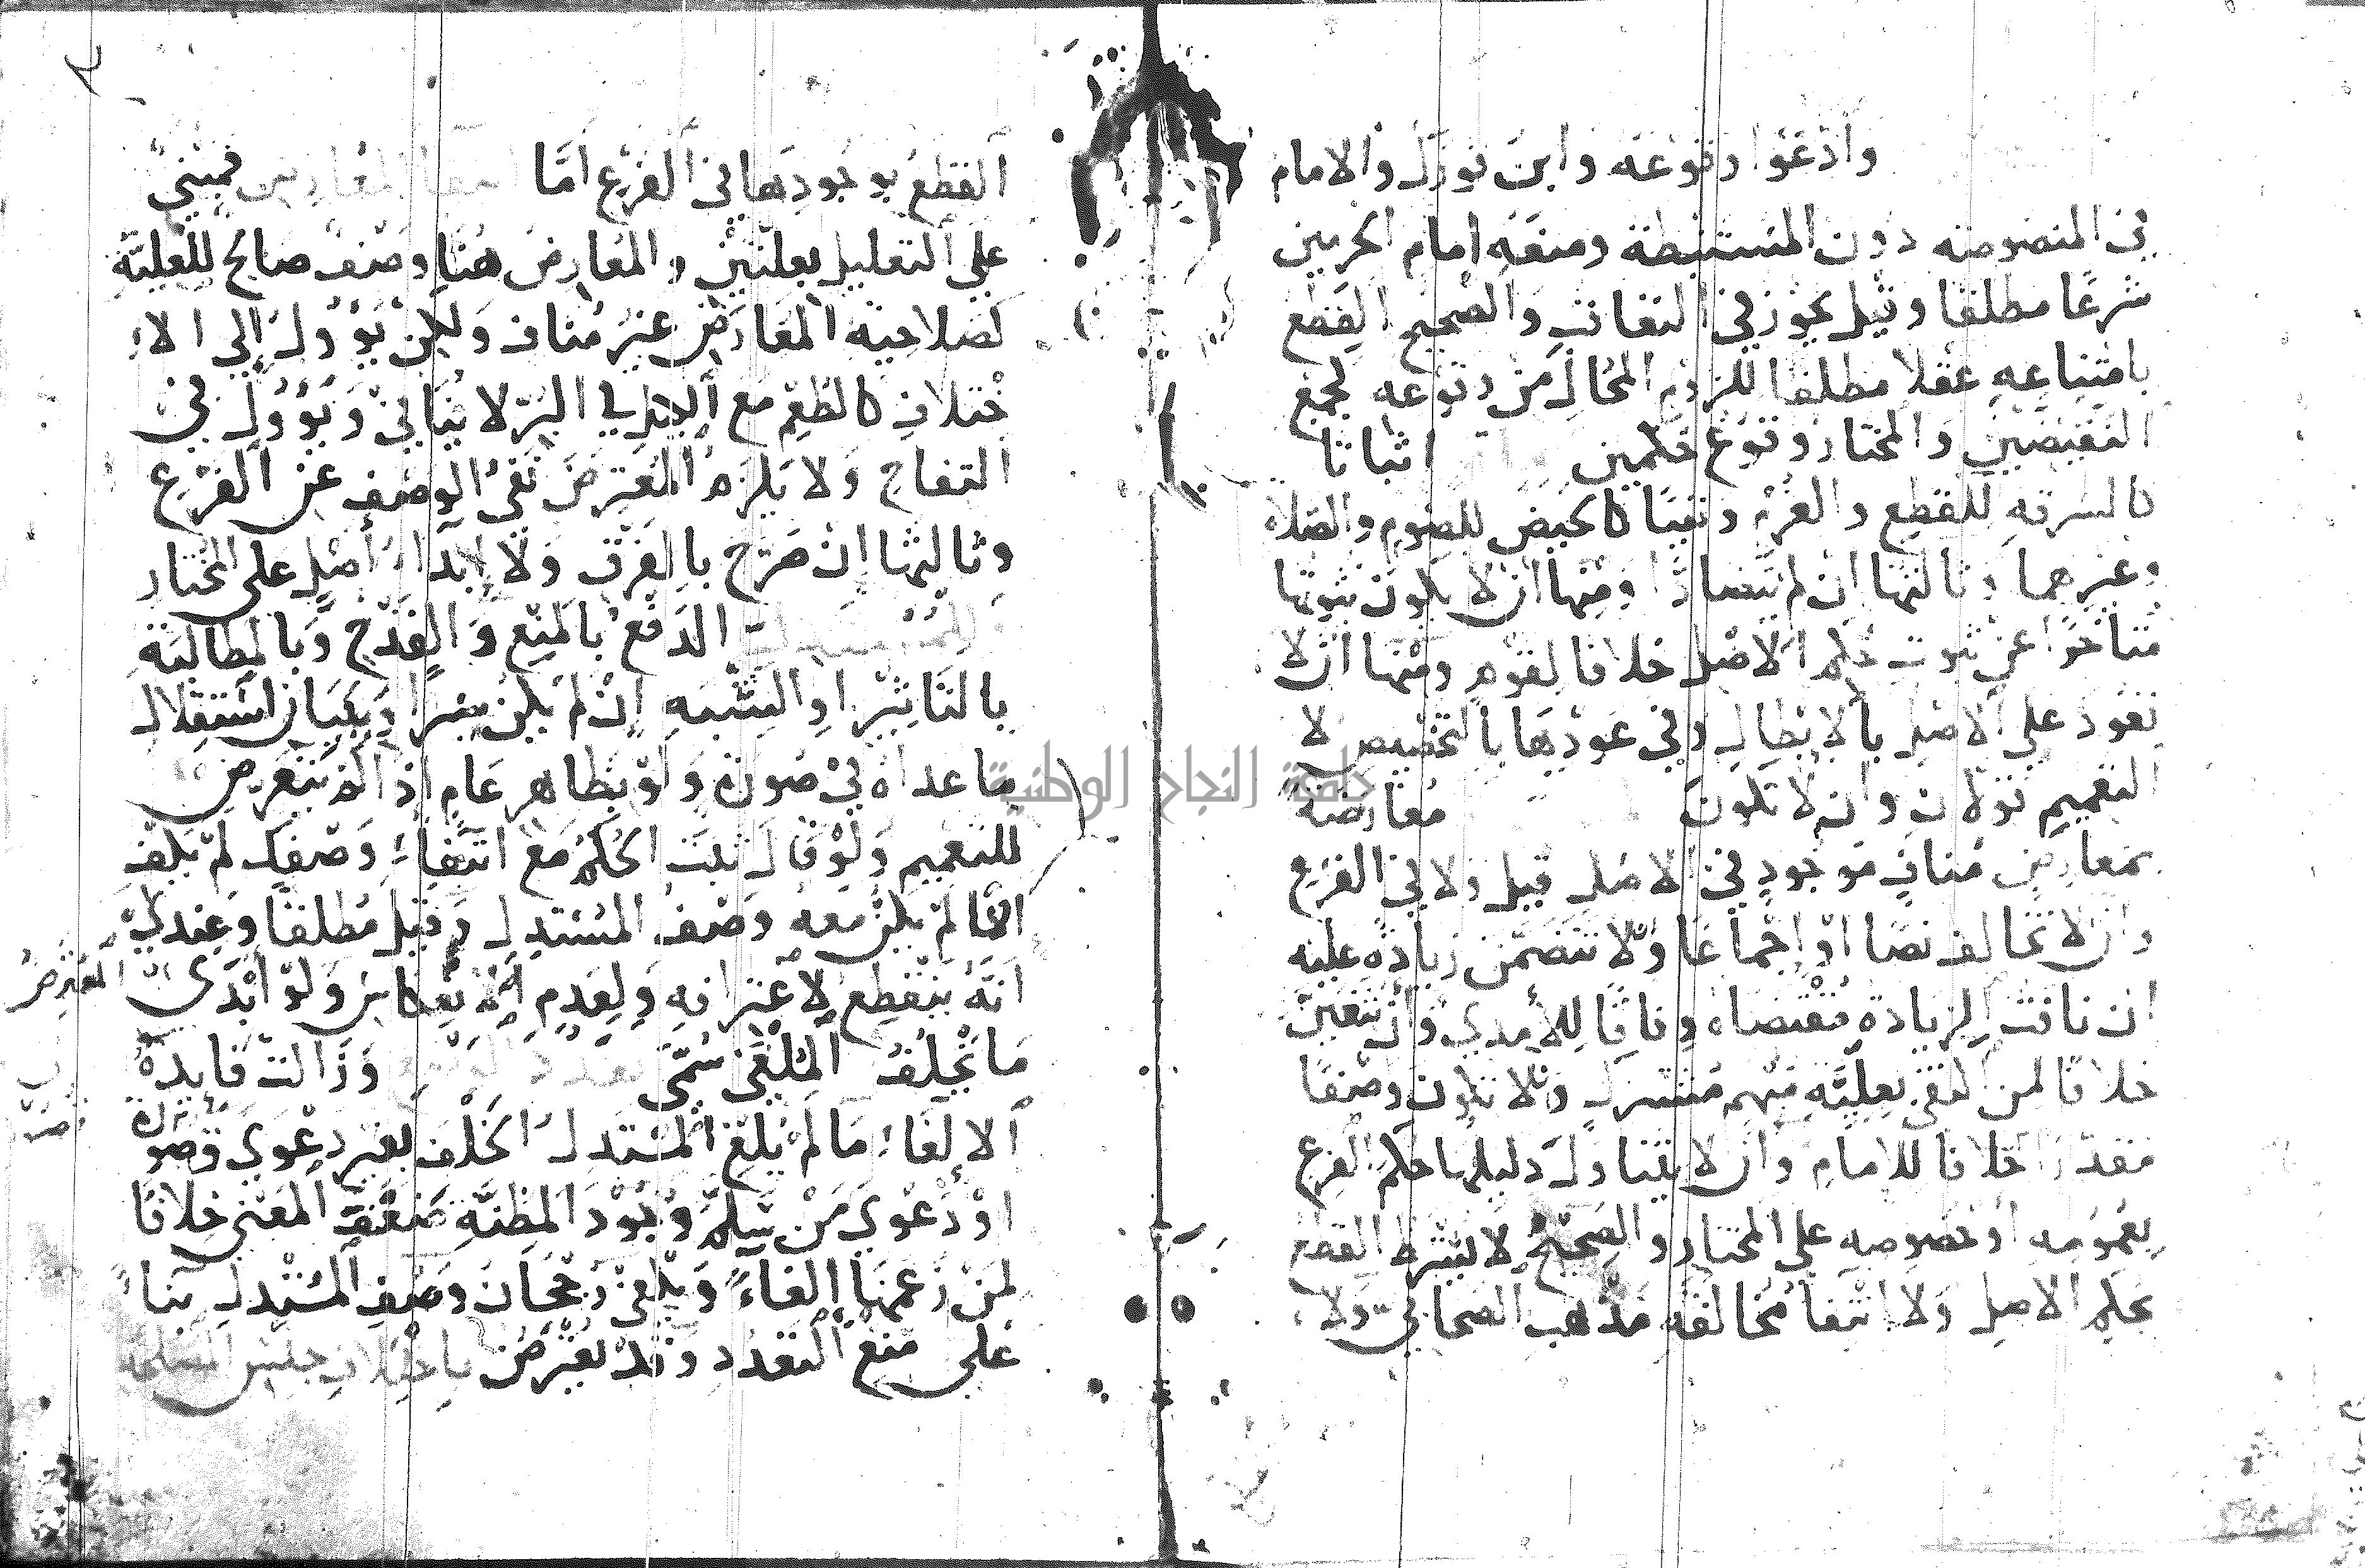 وادعوا وقوعه وابن فورك والامام
في المنصوصه دون المستنبطة ومنعه امام الحرمين
شرعا مطلقا وقيل يجوز في التعاقب والصحيح القطع
بامتناعه عقلا مطلقا للزوم المحال من وقوعه لجمع
النقيضين والمختار وقوع حكمين اثباتا
كالسرقه للقطع والغرم ونفيا كالحيض للصوم والصلاة
وغيرهما وثالثها ان لم يتضادا ومنها ان لا يكون ثبوتها
متاخرا عن ثبوت حكم الاصل خلافا لقوم ومنها ان لا
تعود على الاصل بالابطال وفي عودها بالتخصيص لا
التعميم قولان وان لا تكون معارضة
بمعارض مناف موجود في الاصل قيل ولا في الفرع
وان لا تخالف نصا او اجماعا ولا تتضمن زيادة عليه
ان نافت الزيادة مقتضاه وفاقا للأمدي وأن تتعين
خلافا لمن اكتفى بعلية مبهم مشترك وألا تكون وصفا
مقدرا خلافا للامام وان لا يتناول دليلها حكم الفرع
بعمومه او خصوصه على المختار والصحيح لا يشترط القطع
بحكم الاصل ولا انتفا مخالفة مذهب الصحابي ولا
القطع بوجودها في الفرع أمّا المعارض فمبني
على التعليل بعلتين والمعارض هنا وصف صالح للعليّة
كصلاحية المعارض غير مناف ولكن يؤول إلى الا
ختلاف كالطعم مع الكيل في البر لا ينافي ويؤول في
التفاح ولا يلزم المعترض نفي الوصف عن الفرع
وثالثها ان صرح بالفرق ولا إبداء أصل على المختار
وللمستدل الدفع بالمنع والقدح وبالمطالبة
بالتاثير او الشبه إن لم يكن سبرا وببيان استقلال
ما عداه في صورة ولو بظاهر عام إذا لم يتعرض
للتعميم ولو قال ثبت الحكم مع انتفاء وصفك لم يكف
ان لم يكن معه وصف المستدل وقيل مطلقا وعندي
أنه ينقطع لاعترافه ولعدم الانعكاس ولو أبدى المعترض
ما يخلف الملغى سمي تعدد الوضع وزالت فايدة
الإلغاء ما لم يلغ المستدل الخلف بغير دعوى قصوره
او دعوى من سلم وجود المظنة ضعف المعنى خلافا
لمن زعمها الغاء ويكفي رجحان وصف المستدل بنا
على منع التعدد وقد يعترض باختلاف جنس المصلحة
جامعة النجاح الوطنية